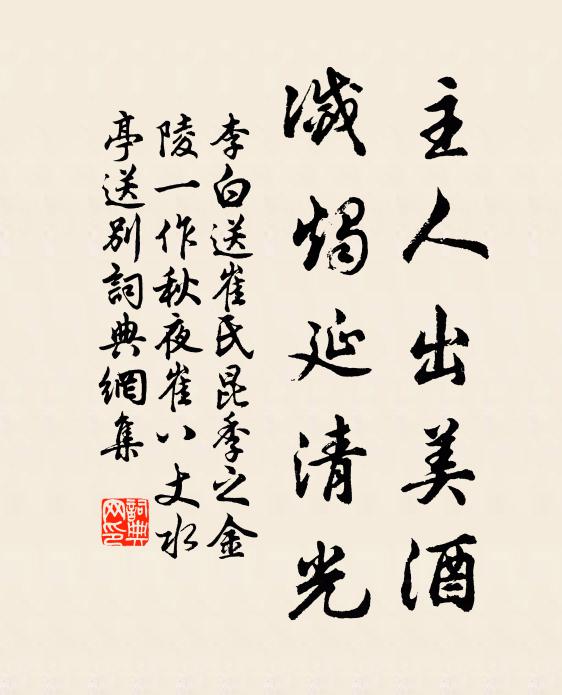 主人出美酒
滅燭延清光
李白送崔氏昆季之金
陵一作秋夜崔八丈水
亭送別詞典網集
詞典
网印